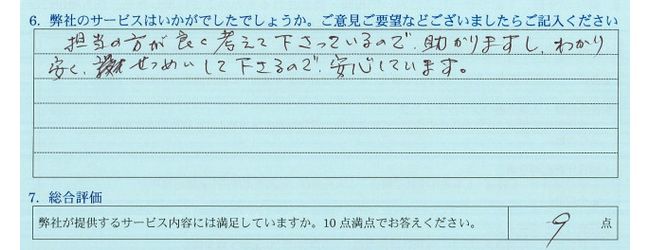 6. 弊社のサービスはいかがでしたでしょうか。ご意見ご要望などございましたらご記入ください
担当の方が良く考えて下さっているので、助かりますし、わかり
安く、せつめいして下さるので、安心しています。
7. 総合評価
弊社が提供するサービス内容には満足していますか。10点満点でお答えください。 9 点